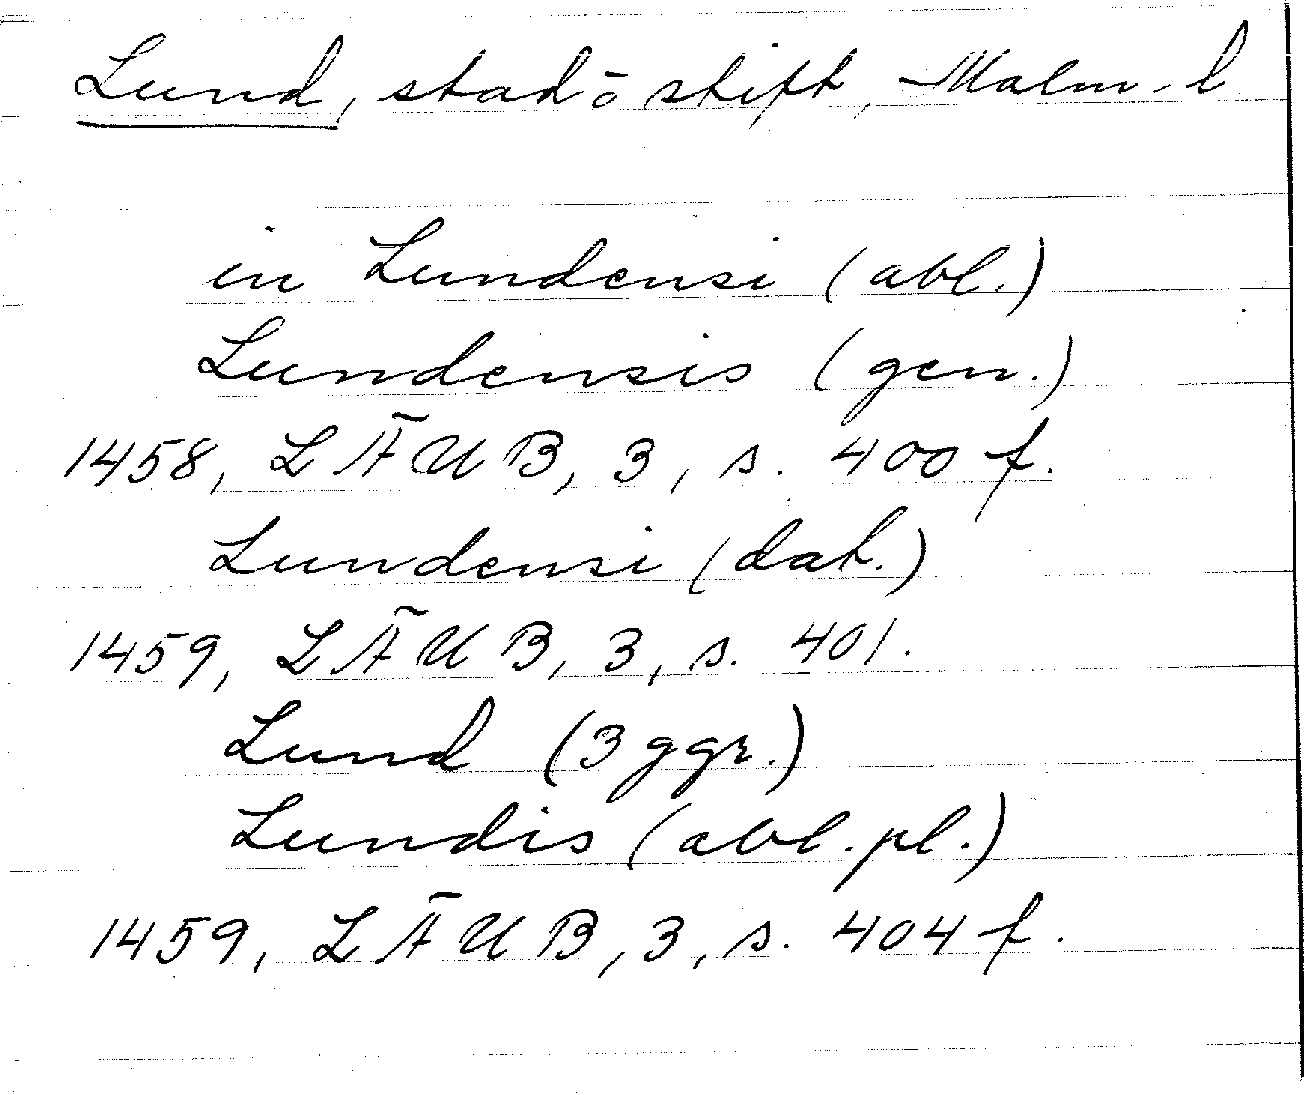 Lund, stad ō stift, Malm. l
in Lundensi (abl.)
Lundensis (gen.)
1458, LÄUB, 3, s. 400 f.
Lundensi (dat.)
1459, LÄUB, 3, s. 401.
Lund (3 ggr.)
Lundis (abl. pl.)
1459, LÄUB, 3, s. 404 f.